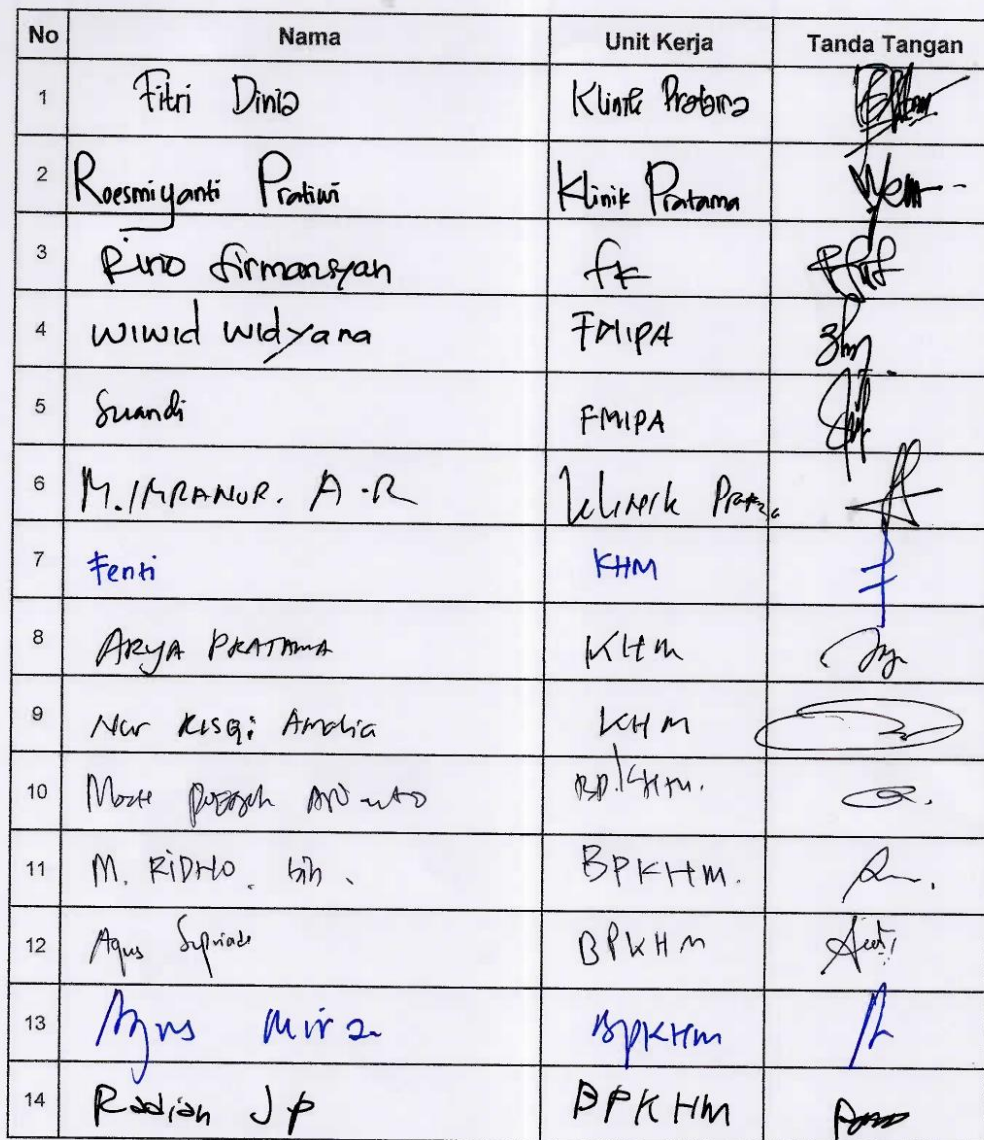 No Nama Unit Kerja Tanda Tangan
1 Fitri Dinia Klinik Pratama
2 Roesmiyanti Pratiwi Klinik Pratama
3 Rino Firmansyah FK
4 Wiwid Widyana FMIPA
5 Suandi FMIPA
6 M. IMRANUR. A.R Klinik
7 Fenti KHM
8 ARYA PRATAMA KHM
9 Nur Risqi Amalia KHM
10 BPKHM.
11 M. RIDHO. BPKHM.
12 Agus Supriadi BPKHM
13 Agus Mirza BPKHM
14 Radian JP BPKHM